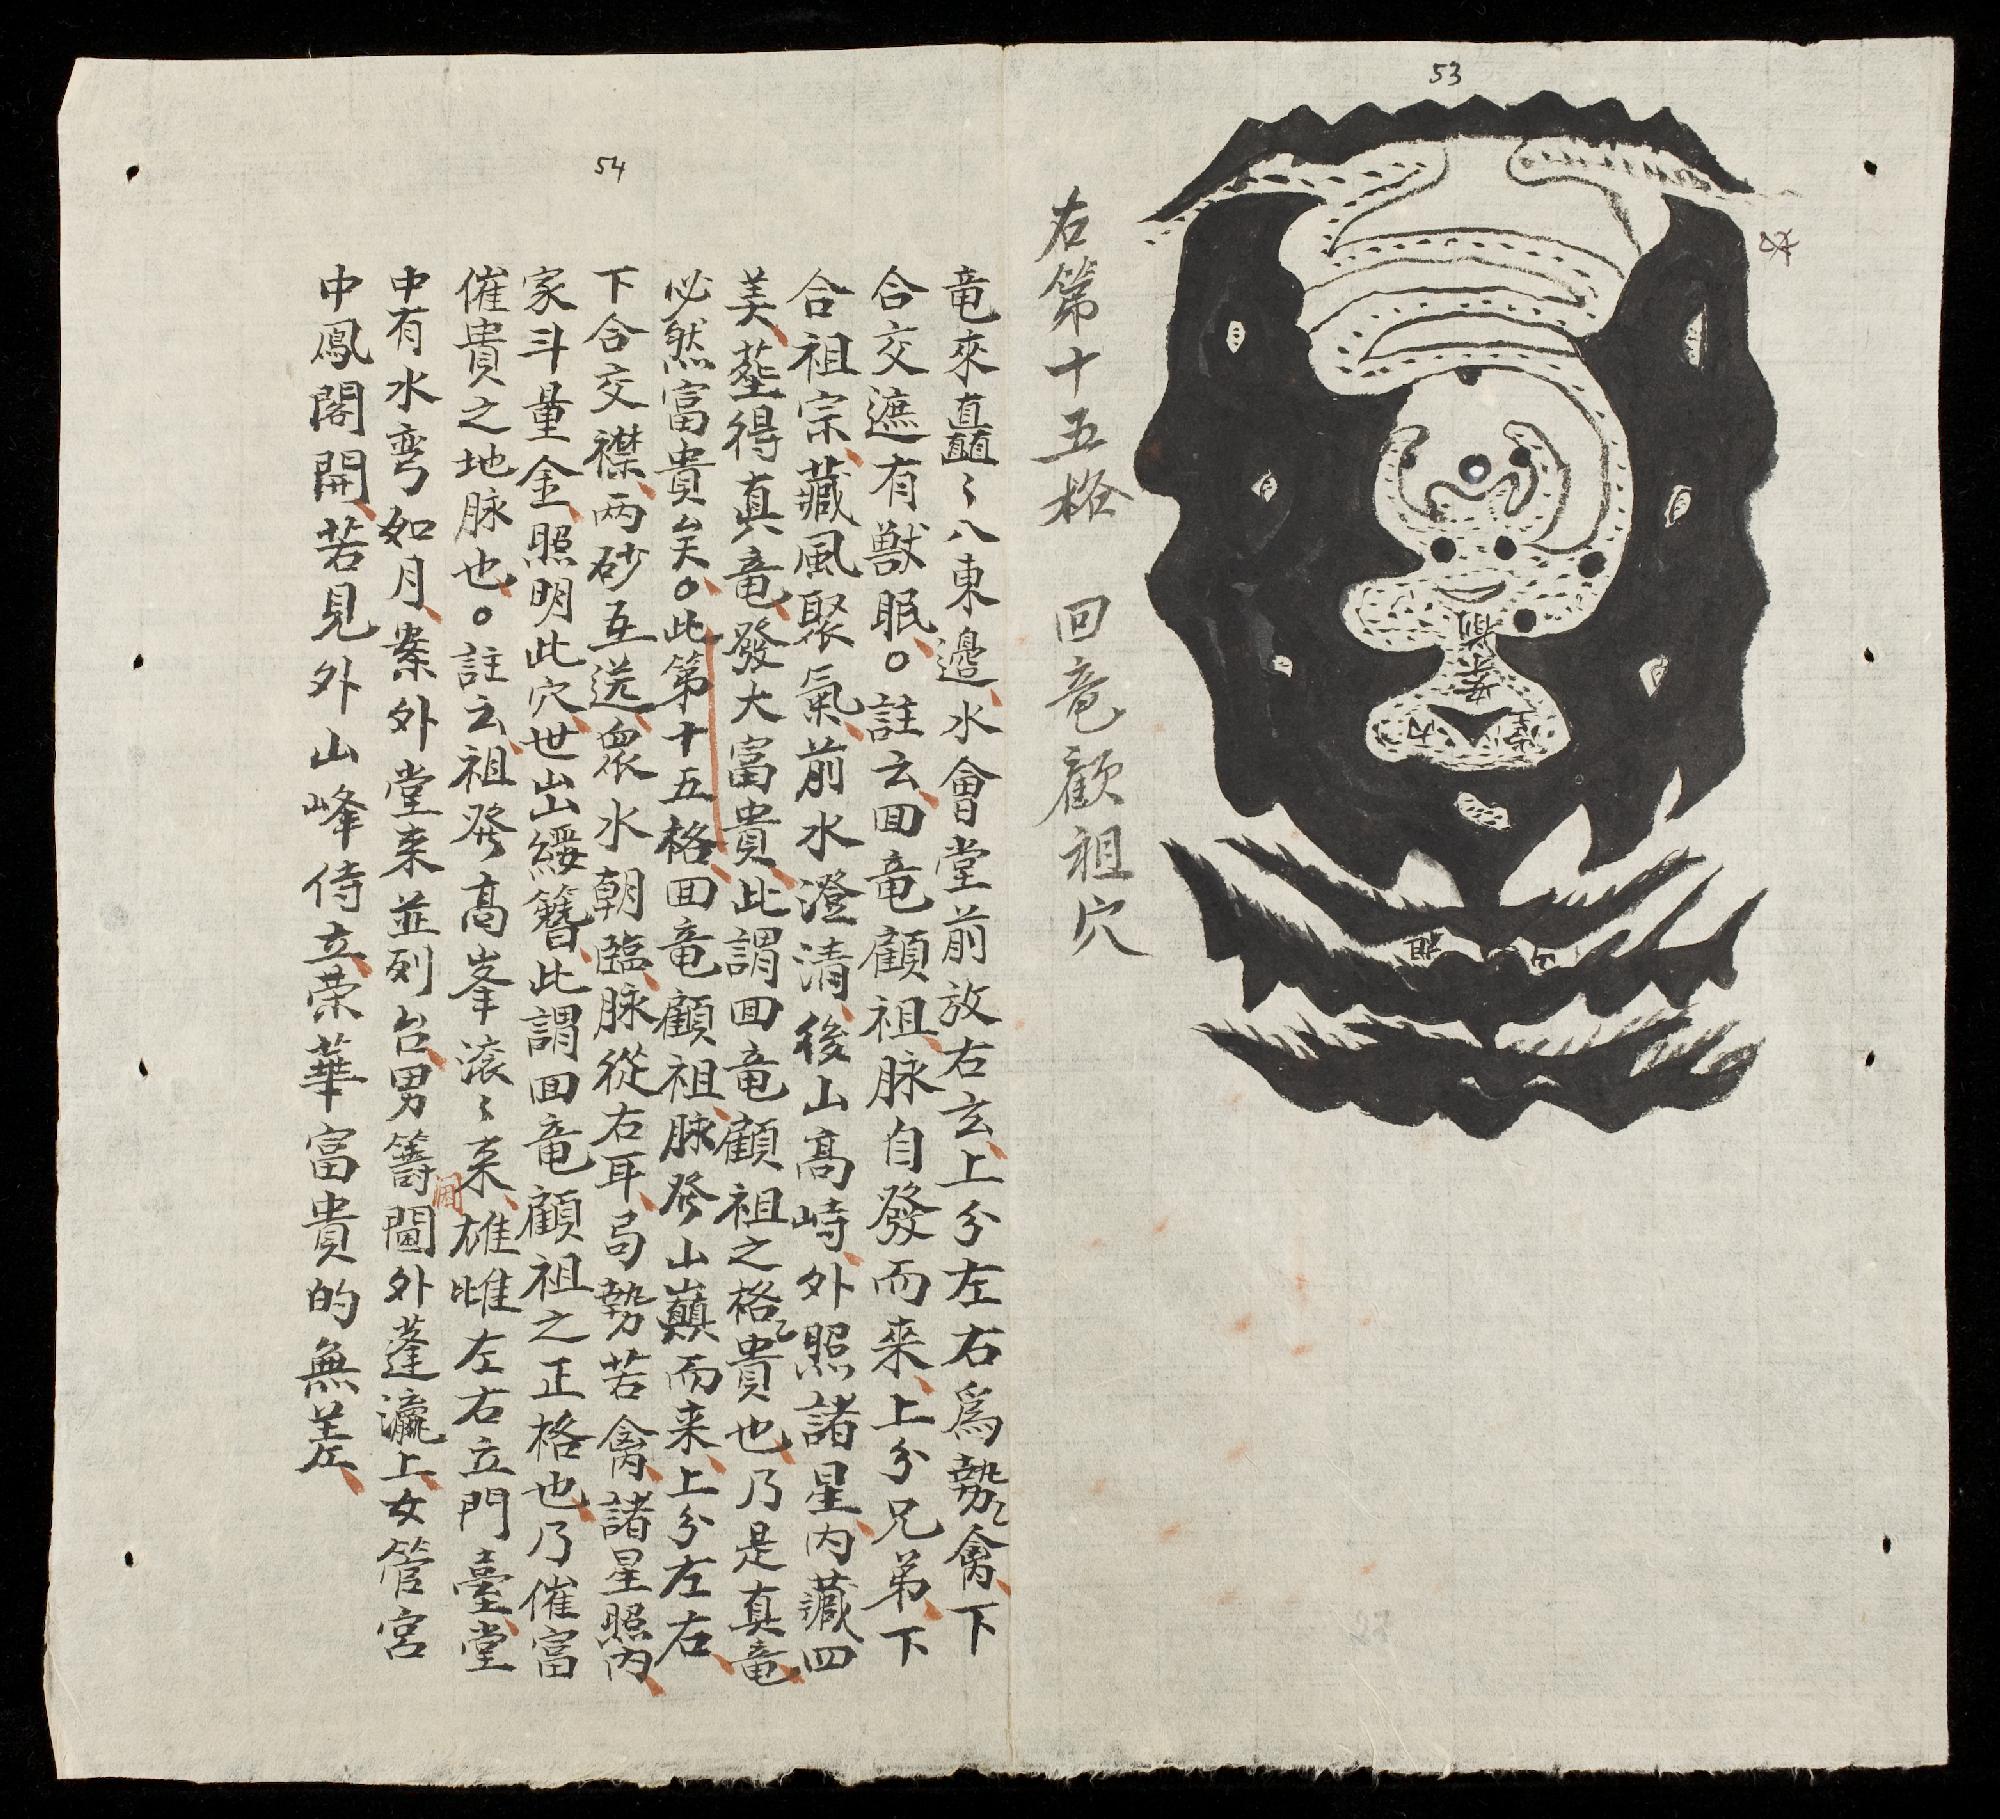 53
右第十五格 回竜顧祖穴
54
竜來矗〻八東邊水會堂前放右玄上分左右爲勢禽下
合交遮有獣眠○註云囬竜顧祖脉自發而来上分兄弟下
合祖宗藏風聚氣前水澄清後山高峙外照諸星内藏四
美塟得真竜發大富貴此謂囬竜顧祖之格貴也乃是真竜
必然富貴矣○此第十五格囬竜顧祖脉発山巔而来上分左右
下合交襟两砂互送衆水朝臨脉從右耳局勢若禽諸星照内
家斗量金照明此穴世出綬簪此謂囬竜顧祖之正格也乃催富
催貴之地脉也○註云祖発高峯滚〻来雄雎左右立門臺堂
中有水弯如月案外堂来並列台男籌閫外蓬瀛上女管宮
中鳳閣開若見外山峰侍立荣華富貴的無差